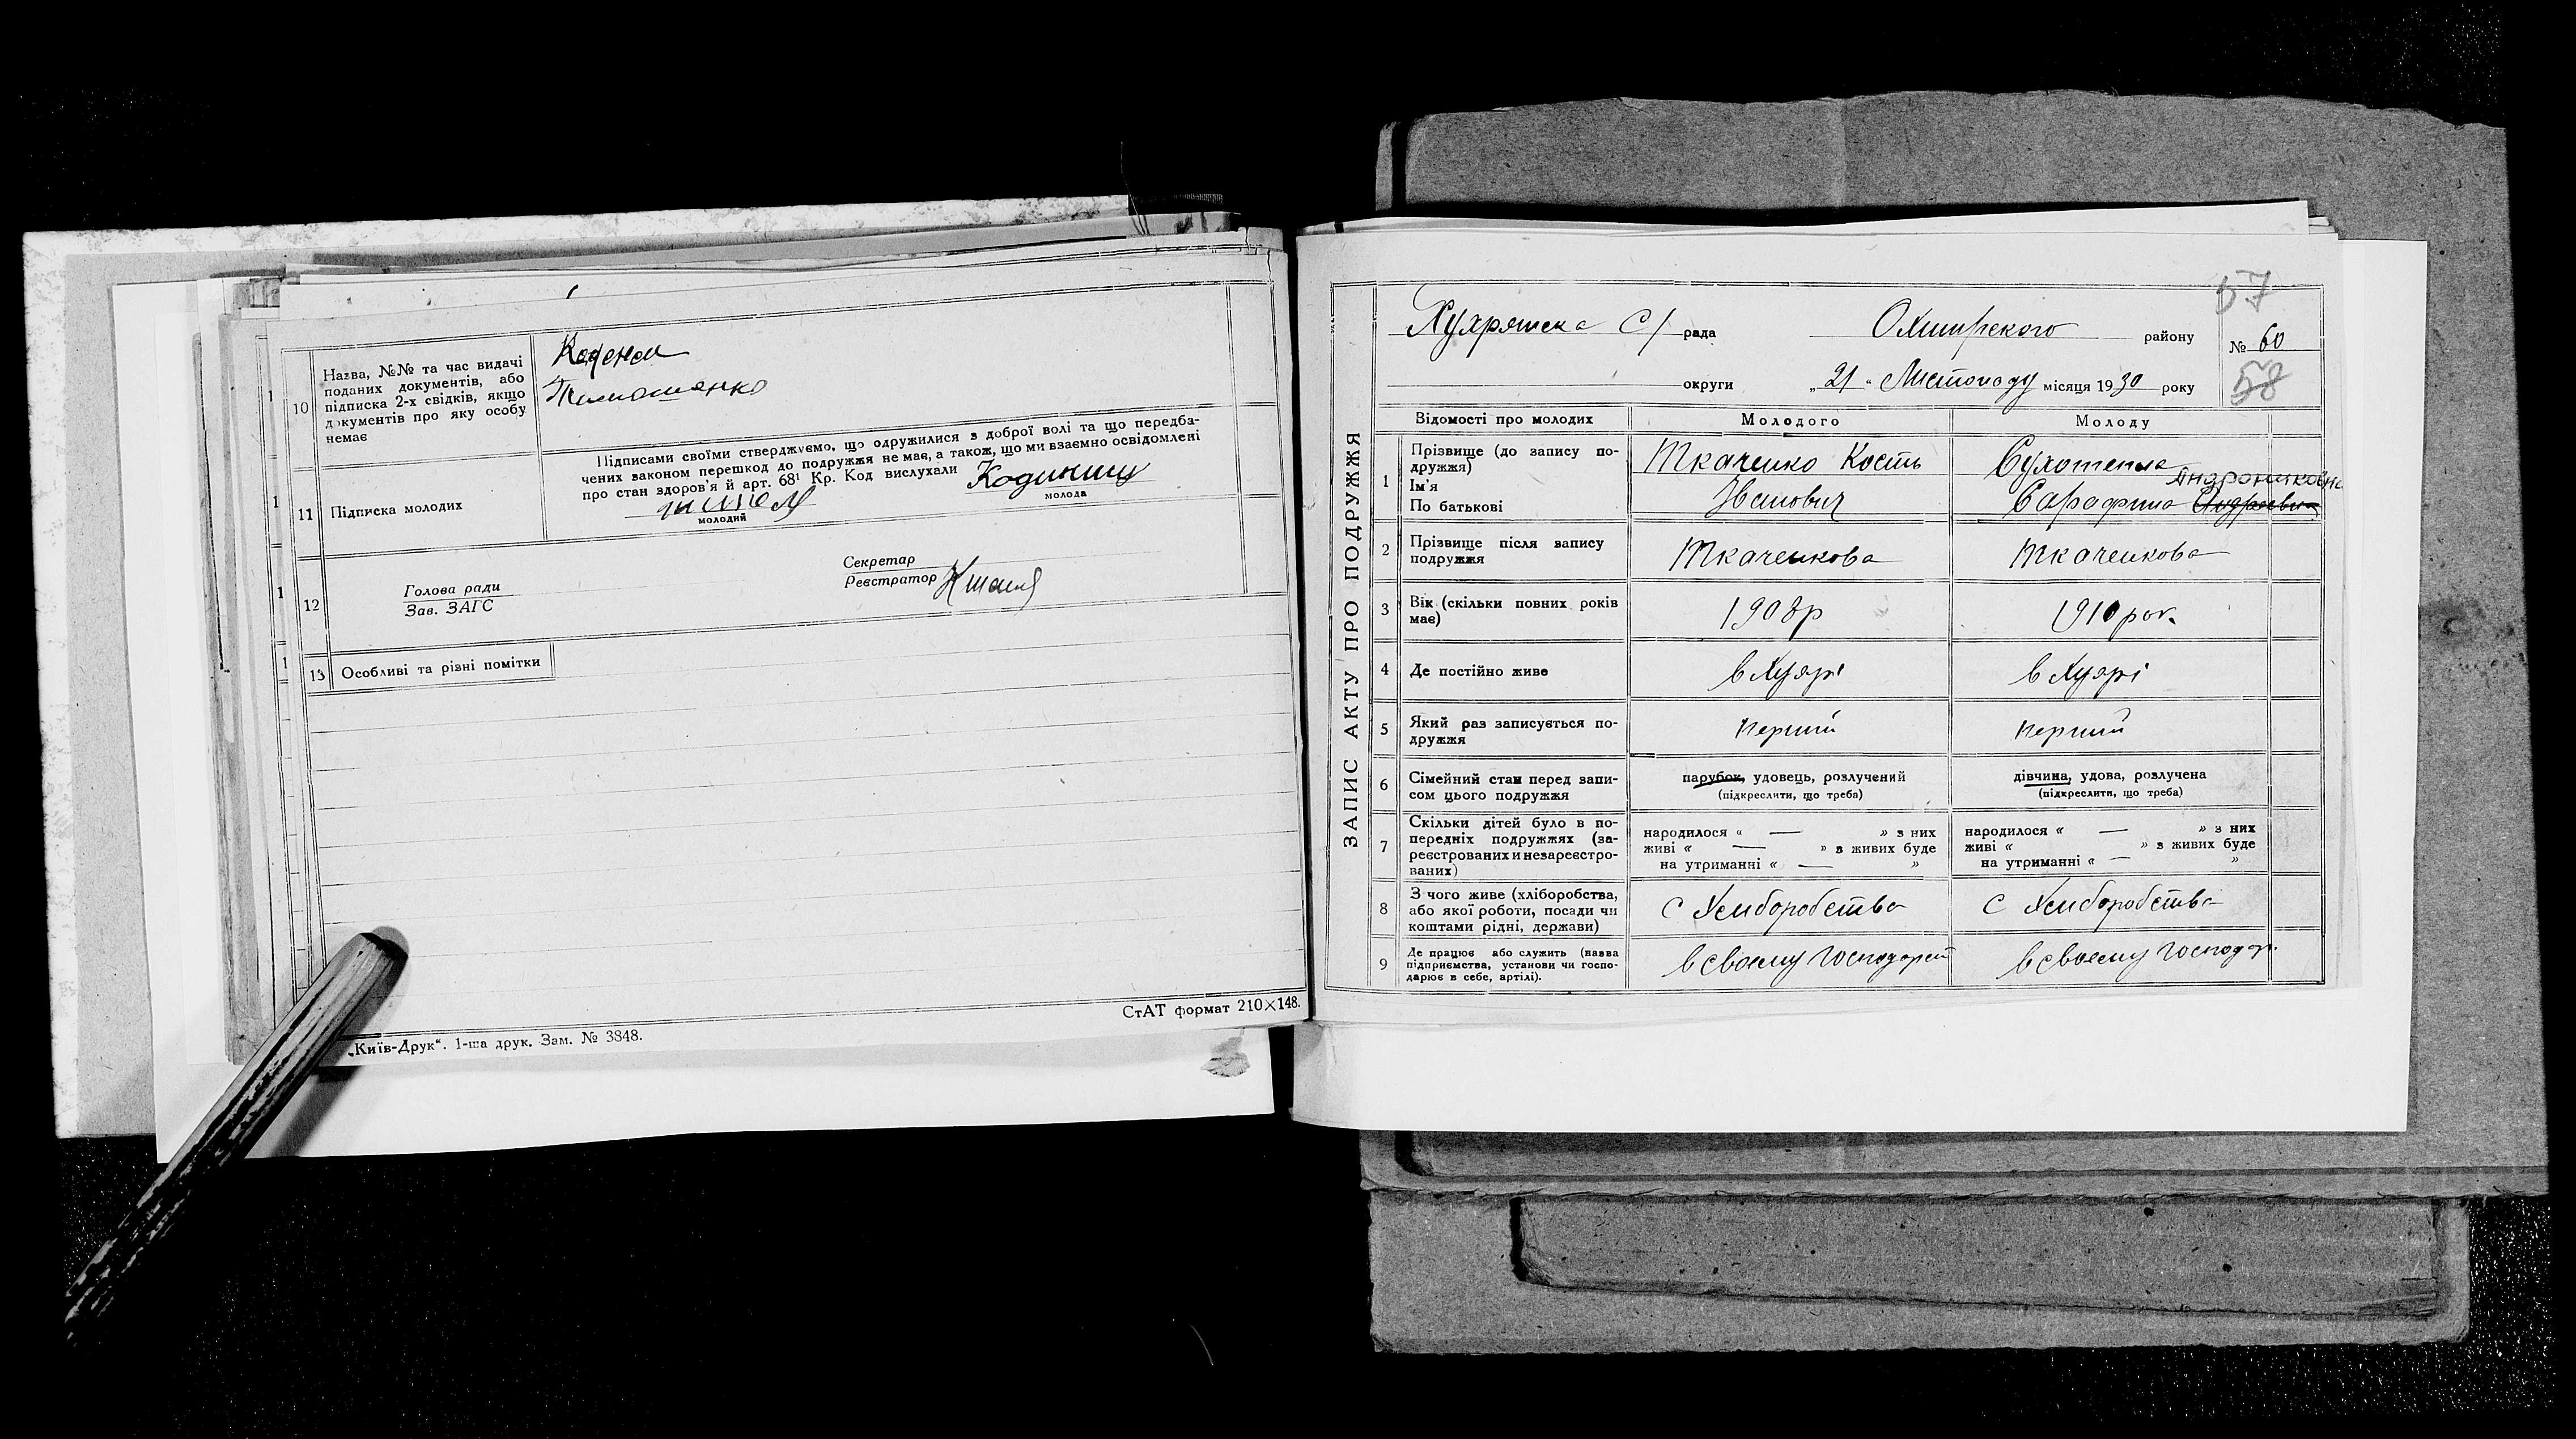 10
Назва, №№ та час видачі
поданих документів, або
підписка 2-х свідків, якщо
документів про яку особу
немає
Тимошенко
11 Підписка молодих
Підписами своїми стверджуємо, що одружилися з доброї волі та що передба-
чених законом перешкод до подружжя не має, а також, що ми взаємно освідомлені
про стан здоров'я й арт. 68¹ Кр. Код вислухали
молодий
молода
12
Голова ради
Зав. ЗАГС
Секретар
Реєстратор
13 Особливі та різні помітки
СтАТ формат 210×148.
„Київ-Друк“. 1-ша друк. Зам. № 3848.
ЗАПИС АКТУ ПРО ПОДРУЖЖЯ
57
Хухрянска С/ рада Охтирского району № 60
округи „21“ Листопаду місяця 1930 року
58
Відомості про молодих Молодого Молоду
1
Прізвище (до запису по-
дружжя)
Ім'я
По батькові
Ткаченко Кость
Іванович
Сухотепла
Андрониковна
Сарафина Андреевна
2
Прізвище після запису
подружжя
Ткаченкова Ткаченкова
3
Вік (скільки повних років
має)
1908р 1910 рок.
4 Де постійно живе в Хухрі в Хухрі
5
Який раз записується по-
дружжя
перший перший
6
Сімейний стан перед запи-
сом цього подружжя
парубок, удовець, розлучений
(підкреслити, що треба)
дівчина, удова, розлучена
(підкреслити, що треба)
7
Скільки дітей було в по-
передніх подружжях (за-
реєстрованих и незареєстро-
ваних)
народилося « — » з них
живі « — » з живих буде
на утриманні « — »
народилося « — » з них
живі « » з живих буде
на утриманні « — »
8
З чого живе (хліборобства,
або якої роботи, посади чи
коштами рідні, держави)
с Хлиборобства с Хлиборобства
9
Де працює або служить (назва
підприємства, установи чи госпо-
дарює в себе, артілі).
в своему господарсті в своему господар.